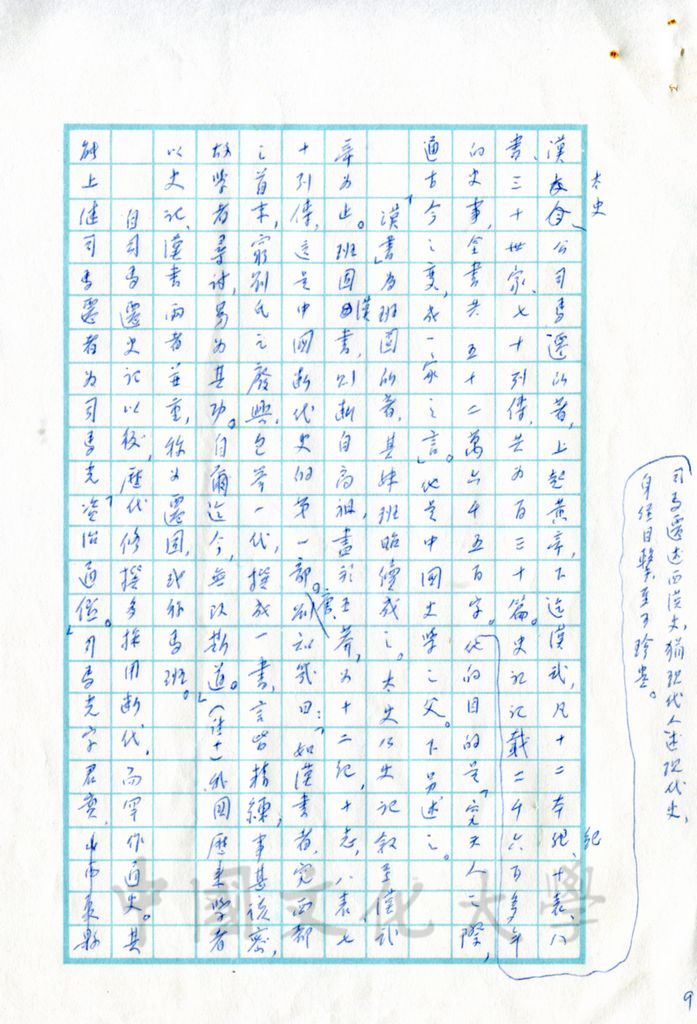 司馬遷述西漢史，猶現代人述現代史，
身經目擊，至可珍貴。
太史
漢公司馬遷所著，上起黃帝，下迄漢武，凡十二本紀、十表、八
書、三十世家、七十列傳，共為百三十篇。史記記載二千六百多年
的史事，全書共五十二萬六千五百字。他的目的是「究天人之際，
通古今之變，成一家之言」。他是中國史學之父。下另述之。
「漢書」為班固所著，其妹班昭續成之。太史公史記敘至漢武
帝為止。班固漢書，則斷自高祖，盡於王莽，為十二紀、十志、八表、七
十列傳，這是中國斷代史的第一部。唐劉知幾曰：「如漢書者，究西都
之首末，窮劉氏之廢興，包舉一代，撰成一書，言皆精練，事甚該密，
故學者尋討，易為其功。自爾迄今，無改斯道。」（註十）我國歷來學者
以史記、漢書兩者並重，稱為遷固，或稱馬班。
自司馬遷史記以後，歷代修撰多採用斷代，而罕作通史。其
能上繼司馬遷者為司馬光「資治通鑑」。司馬光字君實，山西夏縣
中國文化大學
9